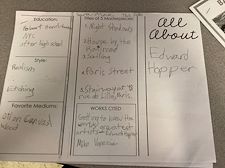 Education:
after high school
Style:
Realism
Etching
Favorite Mediums:
Oil on Canvas
wood
Titles of 5 Masterpieces
1. Night Shadows
2. House by the
Railroad
3. Sailing
4. Paris Street
5. Stairway at 48
rue de Lille, Paris.
WORKS CITED
Getting to know the
world's greatest
artists - Edward Hopper
Mike Venezia
All
About
Edward
Hopper